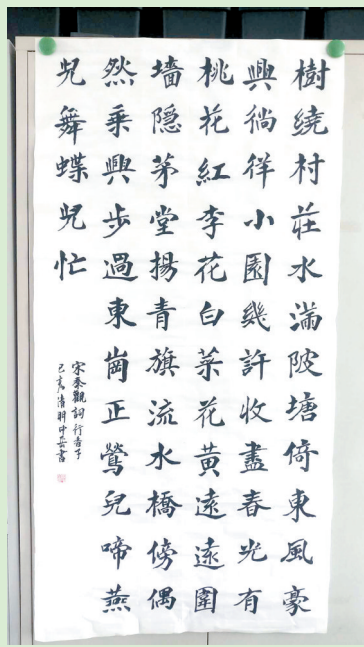 樹繞村莊水滿陂塘倚東風豪
興徜徉小園幾許收盡春光有
桃花紅李花白菜花黃遠遠圍
墻隱茅堂揚青旗流水橋傍偶
然乘興步過東崗正鶯兒啼燕
兒舞蝶兒忙
宋秦觀詞行香子
己亥清明書